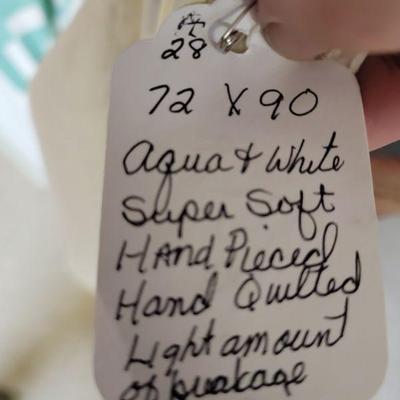 28
72 X 90
Aqua & White
Super Soft
Hand Pieced
Hand Quilted
Light amount
of breakage